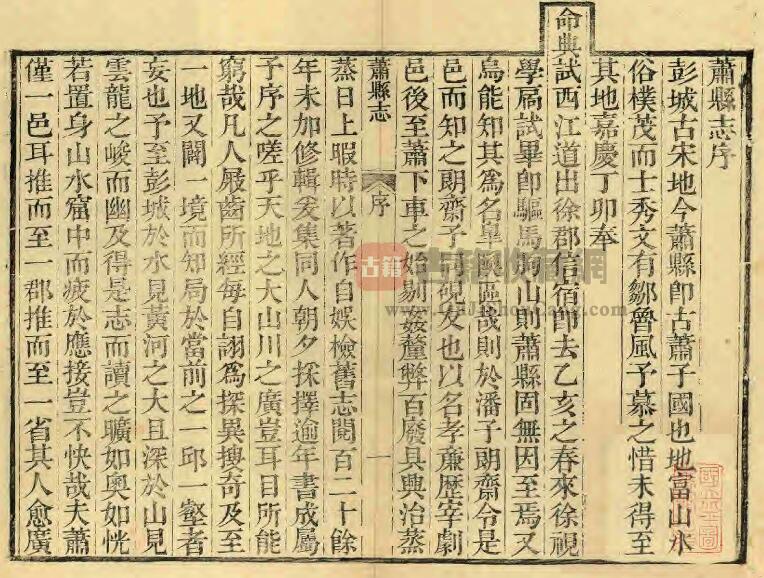 蕭縣志序
彭城古宋地今蕭縣即古蕭子國也地富山水
俗樸茂而士秀文有鄒魯風予慕之惜未得至
其地嘉慶丁卯奉
命典試西江道出徐郡信宿即去乙亥之春來徐視
學扃試畢即驅馬碭山則蕭縣固無因至焉又
烏能知其爲名皐奧區哉則於潘子朗齋令是
邑而知之朗齋予同硯友也以名孝廉歷宰劇
邑後至蕭下車之始剔姦釐弊百廢具興治蒸
蕭縣志 序 一
蒸日上暇時以著作自娛檢舊志閱百二十餘
年未加修輯爰集同人朝夕採擇逾年書成屬
予序之嗟乎天地之大山川之廣豈耳目所能
窮哉凡人屐齒所經每自詡爲探異搜奇及至
一地又闢一境而知局於當前之一邱一壑者
妄也予至彭城於水見黃河之大且深於山見
雲龍之峻而幽及得是志而讀之曠如奧如恍
若置身山水窟中而疲於應接豈不快哉夫蕭
僅一邑耳推而至一郡推而至一省其人愈廣
古籍